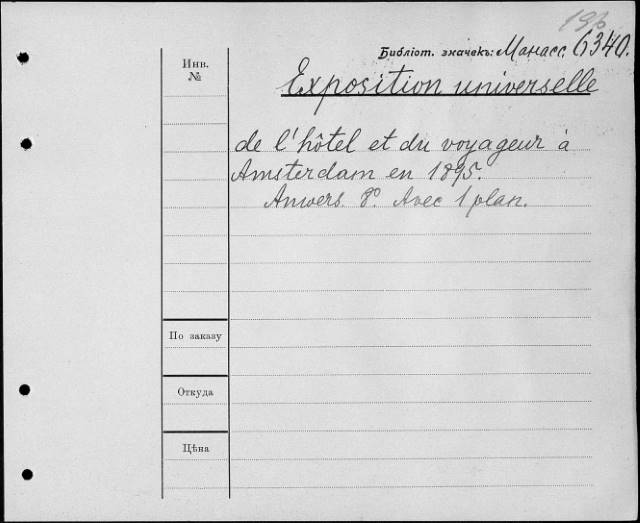 19б
Библіот. значекъ: Манасс. 6340.
Инв.
№
Exposition universelle
de l'hôtel et du voyageur à
Amsterdam en 1895.
Anvers. 8°. Avec 1 plan.
По заказу
Откуда
Цѣна